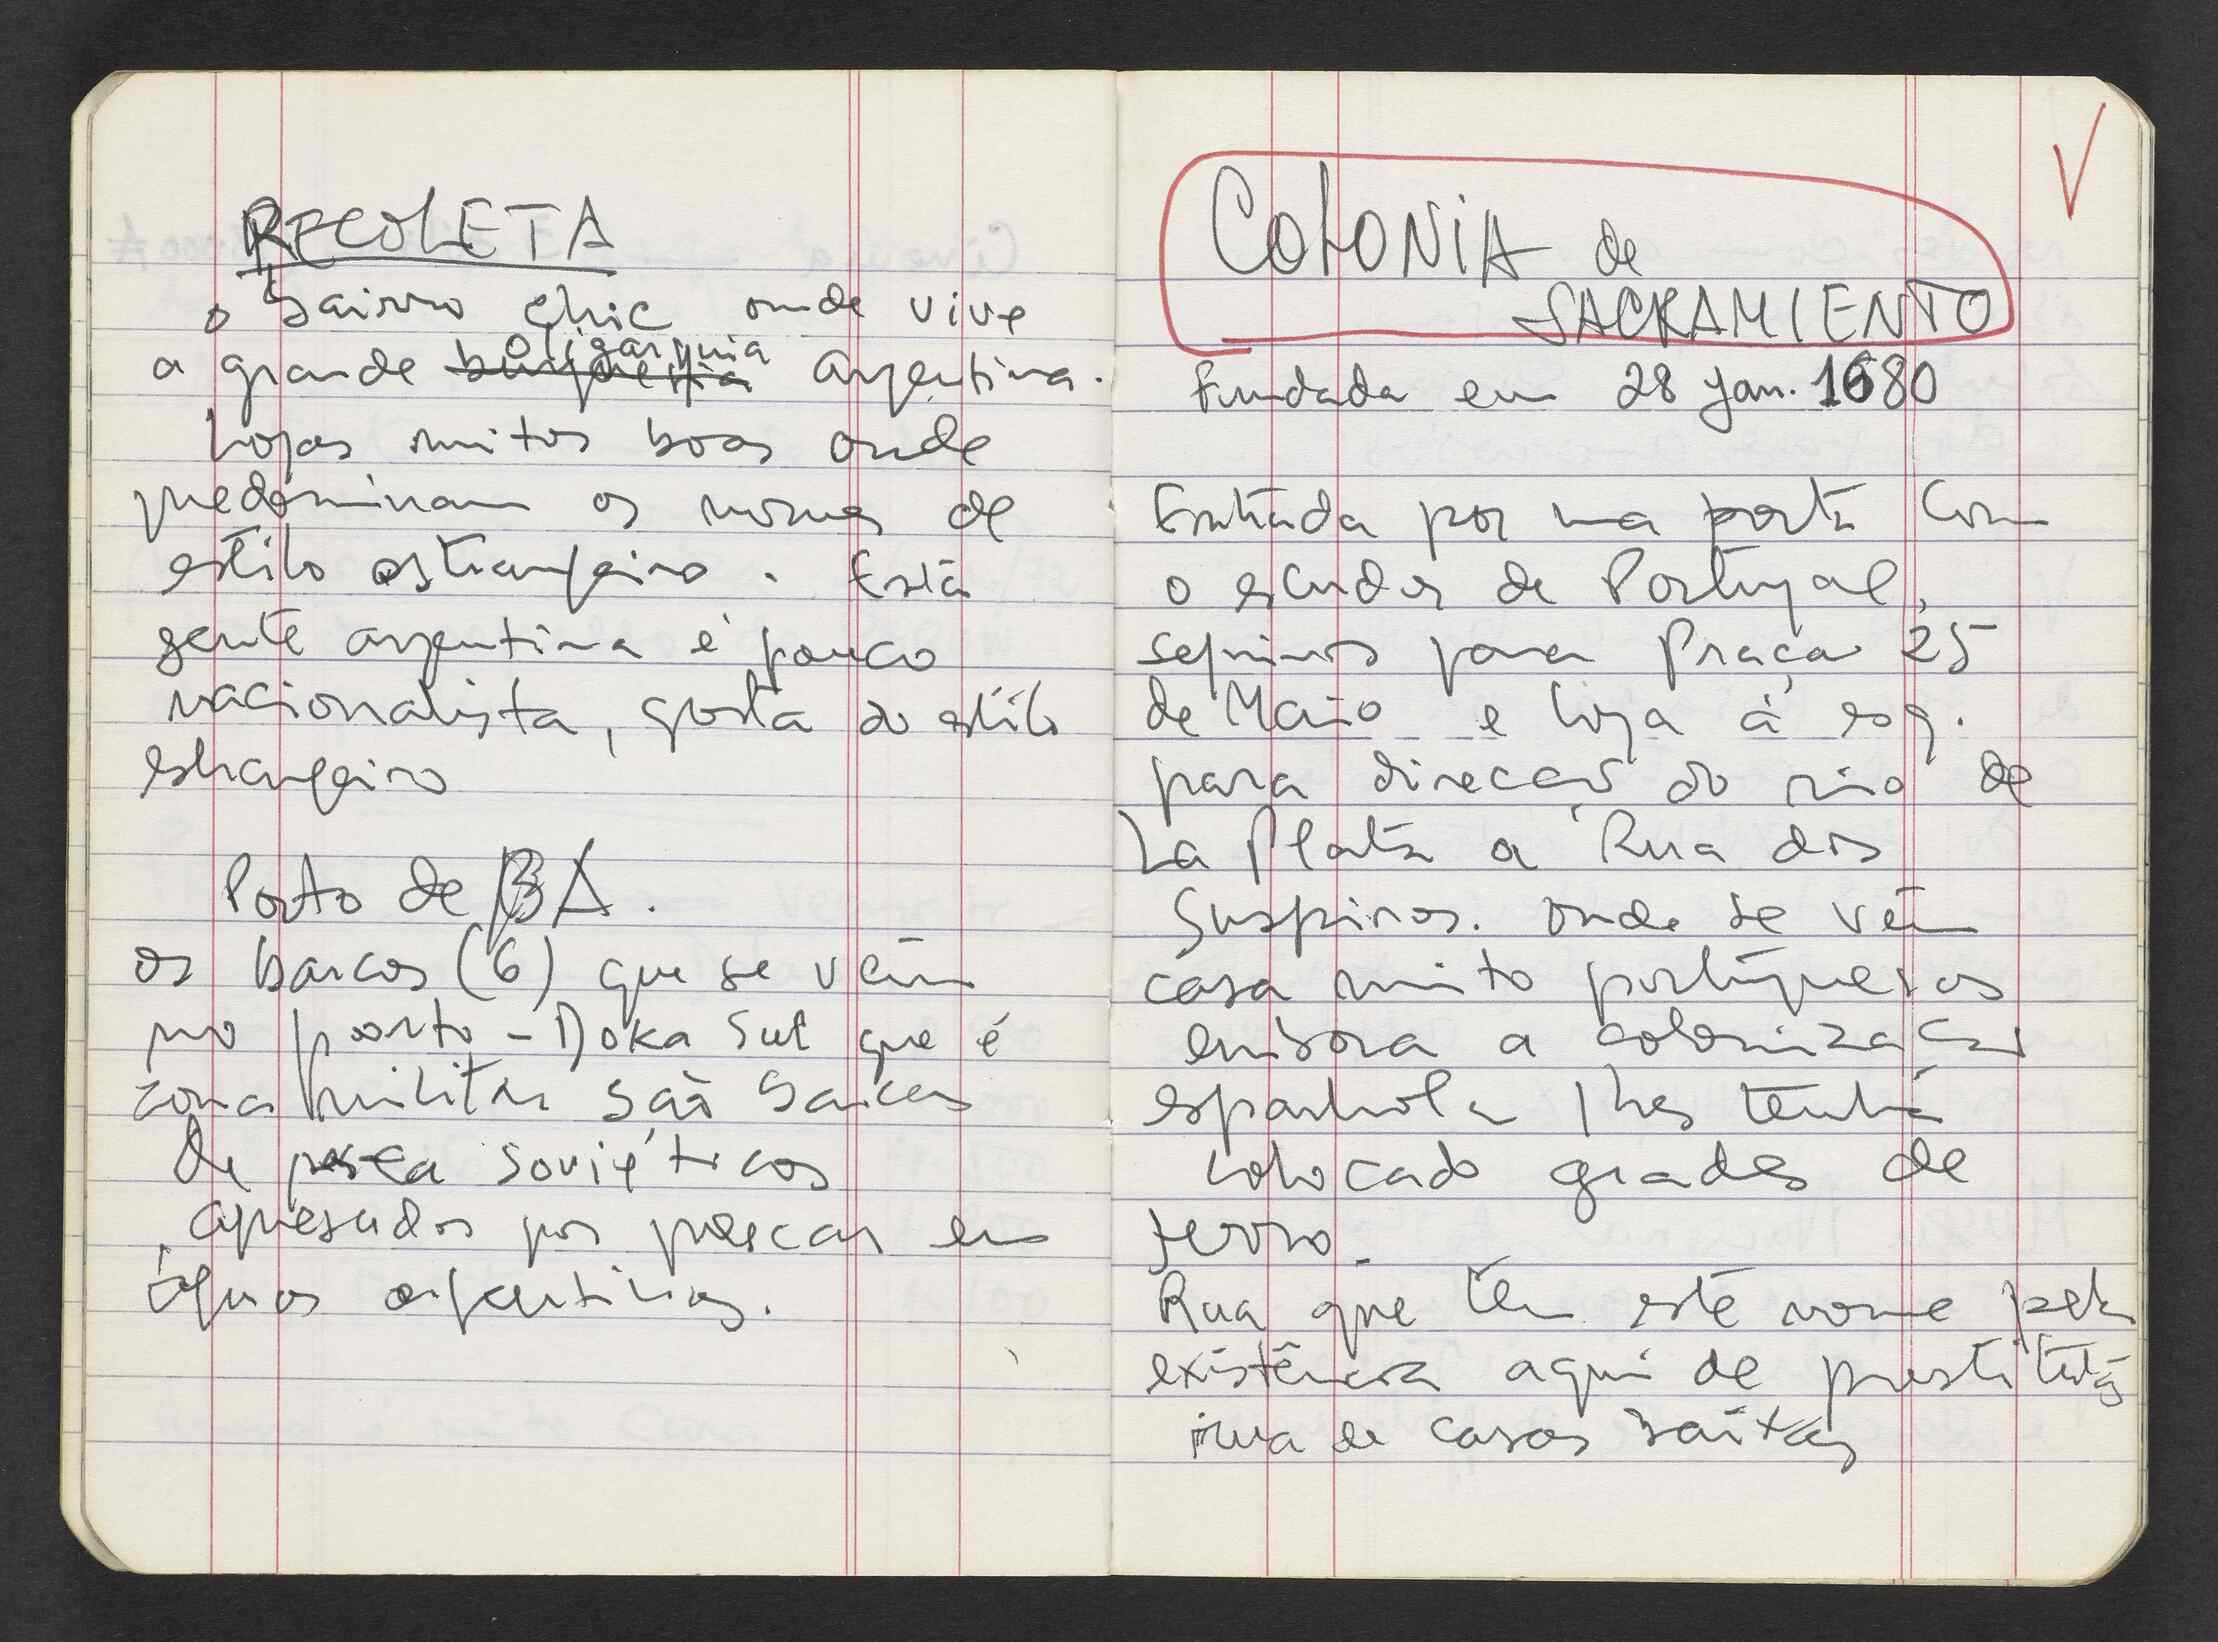 RECOLETA
o bairro chic onde vive
oligarquia
a grande burguesia argentina.
Lojas muitos boas onde
predominam os nomes de
estilo estrangeiro. Esta
gente argentina é pouco
nacionalista, gosta do estilo
estrangeiro
Porto de BA.
os barcos (6) que se vêm
no porto - Doka Sul que é
zona militar são barcos
de pesca soviéticos
apresados por pescar em
águas argentinas.
COLONIA de
SACRAMIENTO
Fundada em 28 Jan. 1680
Entrada por uma porta com
o escudos de Portugal,
seguimos para Praça 25
de Maio e loja à esq.
para direcção do rio de
La Plata a Rua dos
Suspiros. onde se vêm
casa muito portuguesas
embora a colonização
espanhola lhes tenha
colocado grades de
ferro.
Rua que tem este nome pela
existência aqui de prostitutas
rua de casas baixas